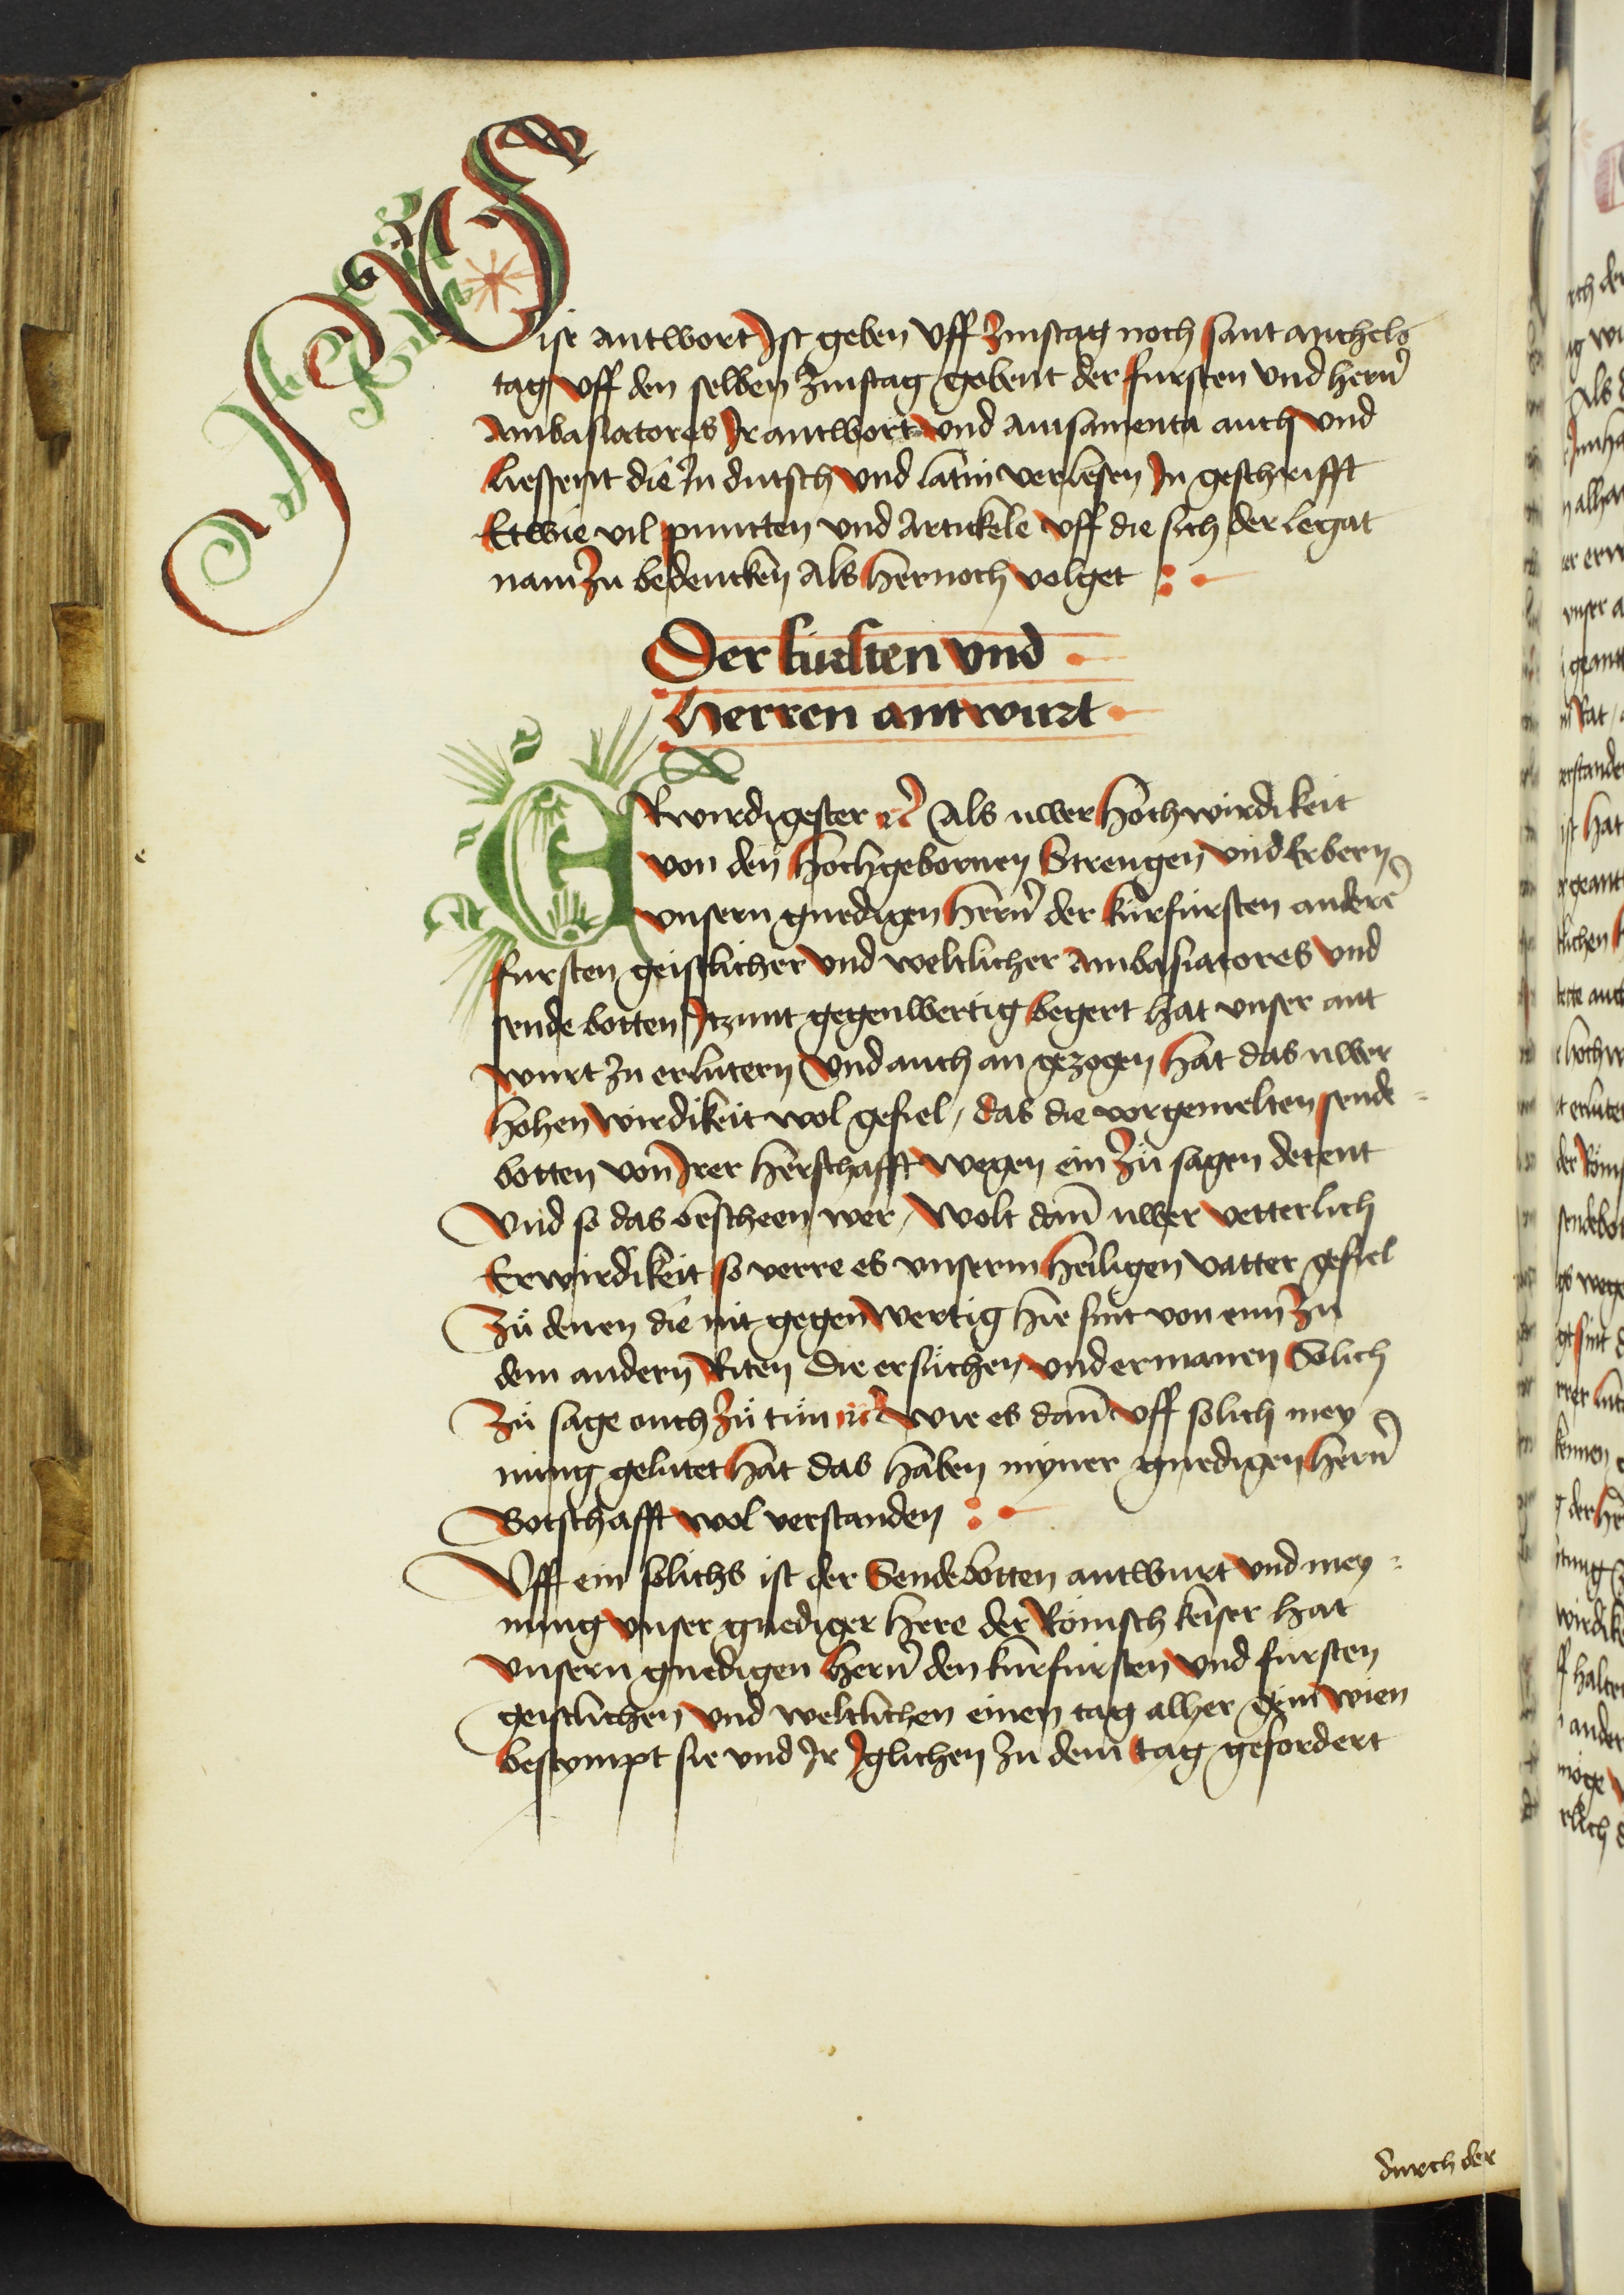 Dise antwort Ist geben vff Zinstag noch sant michels
tag vff den selben Zinstag gobent der fursten vnd hern
Ambasiatores Ir antwort vnd auisamenta auch vnd
liessent die In dutsch vnd latin verlesen In geschrifft
Etwie vil puncten vnd Artickele vff die sich der legat
nam Zu bedencken Als hernoch volget
Der kursten vnd
herren antwurt
ERwirdigester etc Als uwer hochwirdikeit
von den hochgebornen Strengen vnd Erbern
vnsern gnedigen hern der kurfursten anderer
fursten geistlicher vnd weltlicher Ambasiatores vnd
sende botten Itzunt gegenwertig begert hat vnser ant
wurt zu erlutern vnd auch an gezogen hat das uwer
hohen wirdikeit wol gefiel / das die vorgemelten sende
botten von Irer herschafft wegen ein Zu sagen detent
Vnd so das bescheen wer / wolt dann uwer vetterlich
Erwirdikeit so verre es vnserm heiligen vatter gefiel
Zu denen die nit gegenwertig hie sint von eim Zu
dem andern Riten die ersuchen vnd ermanen Solich
Zu sage ouch Zu tun etc wie es dann vff solich mey
nung gelutet hat das haben myner gnedigen hern
Botschafft wol verstanden
Vff ein solichs ist der Sendebotten antwurt vnd mey
nung vnser gnediger here der Romisch keiser hat
vnsern gnedigen hern den kurfursten vnd fursten
geistlichen vnd weltlichen einen tag alher gein wien
bestympt sie vnd Ir Iglichen zu dem tag gefordert
durch der